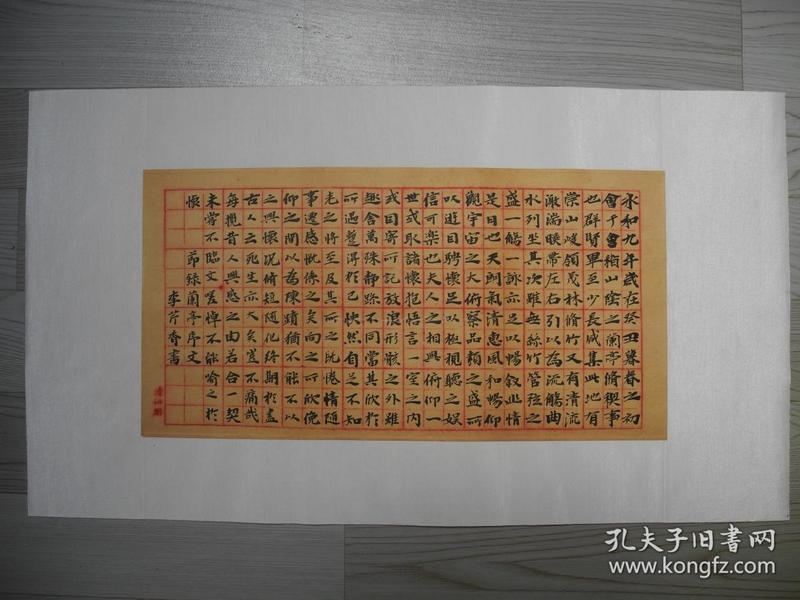 永和九年歲在癸丑暮春之初
會于會稽山陰之蘭亭脩稧事
也群賢畢至少長咸集此地有
崇山峻領茂林脩竹又有清流
激湍暎帶左右引以為流觴曲
水列坐其次雖無絲竹管弦之
盛一觴一詠亦足以暢敘幽情
是日也天朗氣清惠風和暢仰
觀宇宙之大俯察品類之盛所
以遊目騁懷足以極視聽之娛
信可樂也夫人之相與俯仰一
世或取諸懷抱悟言一室之內
或因寄所託放浪形骸之外雖
趣舍萬殊靜躁不同當其欣於
所遇蹔得於己快然自足不知
老之將至及其所之既惓情隨
事遷感慨係之矣向之所欣俛
仰之間以為陳蹟猶不能不以
之興懷況脩短隨化終期於盡
古人云死生亦大矣豈不痛哉
每攬昔人興感之由若合一契
未嘗不臨文嗟悼不能喻之於
懷 節錄蘭亭序文
李芹香書
孔夫子旧書网
www.kongfz.com